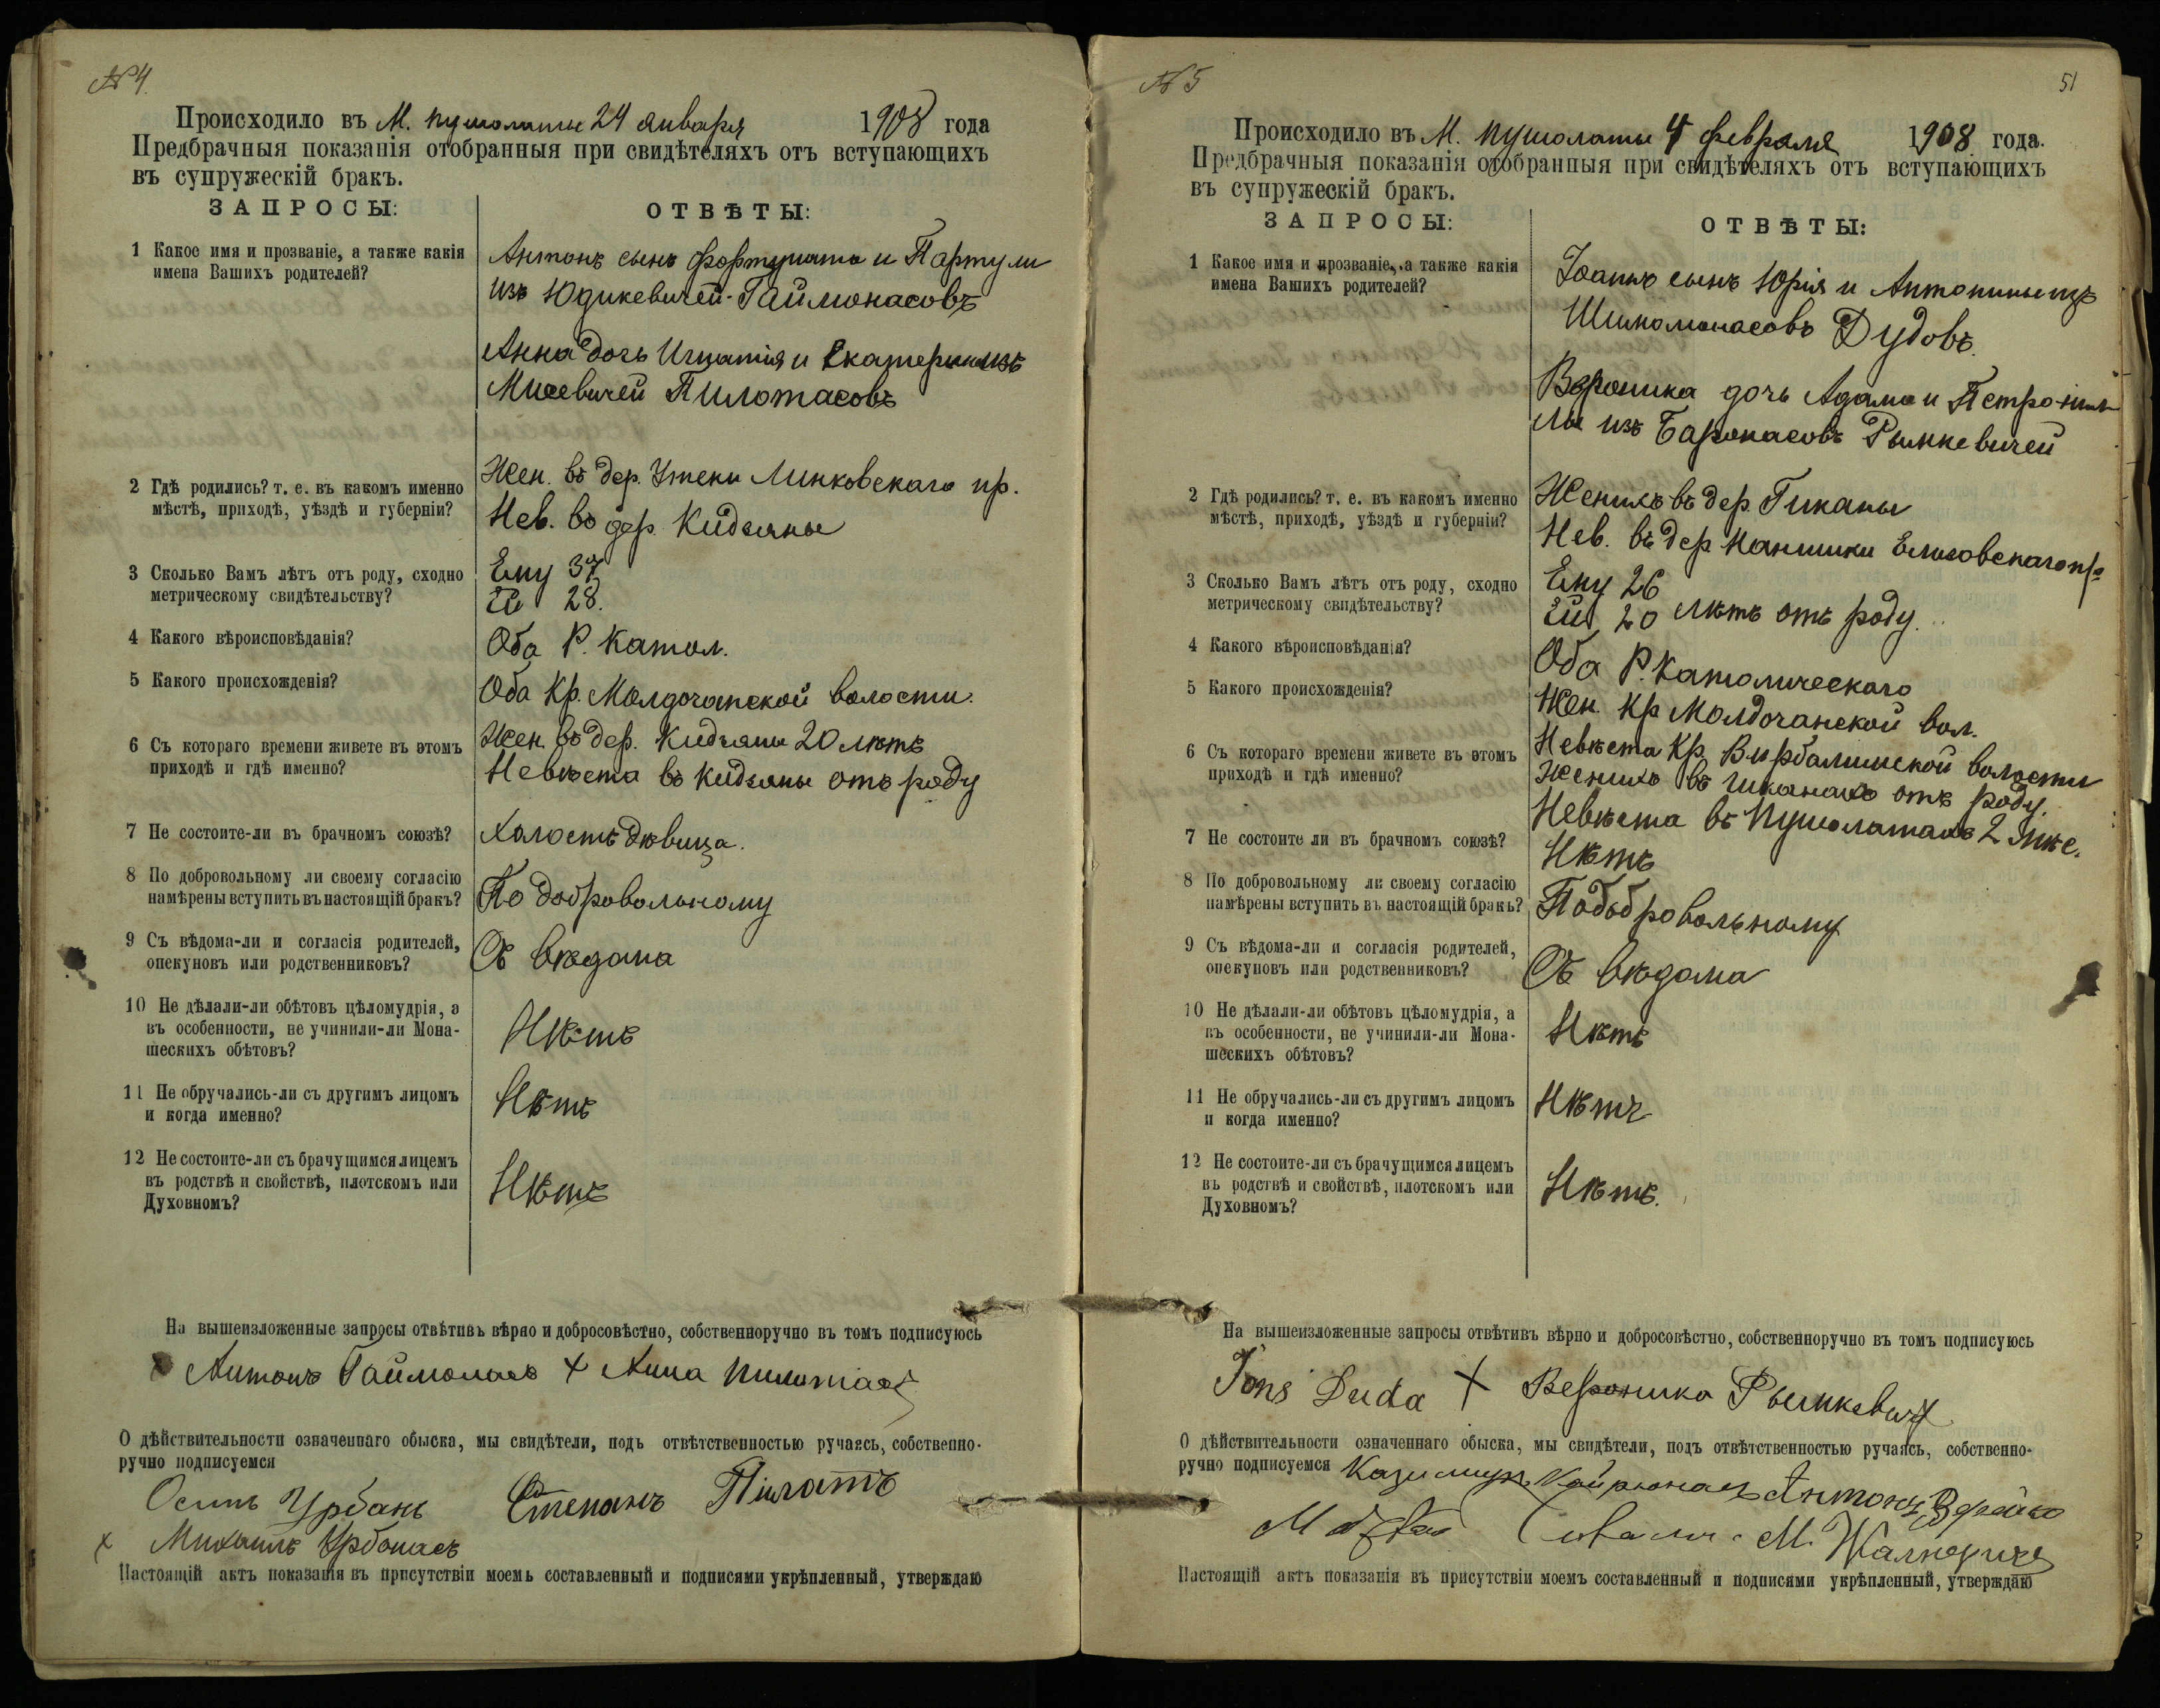 № 4.
Происходило въ М. Пушолаты 24 января 1908 года
Предбрачныя показанія отобранныя при свидѣтеляхъ отъ вступающихъ
въ супружескій бракъ.
ЗАПРОСЫ:
ОТВѢТЫ:
1 Какое имя и прозваніе, а также какія
имена Вашихъ родителей?
Антонъ сынъ Фортуната и
изъ Юдикевичей Гаймонасовъ
Анна дочь Игнатія и Екатерины изъ
Мисевичей Пилотасовъ
2 Гдѣ родились? т. е. въ какомъ именно
мѣстѣ, приходѣ, уѣздѣ и губерніи?
Жен. въ дер. Утеки Линковскаго пр.
Нев. въ дер. Кидзяны
3 Сколько Вамъ лѣтъ отъ роду, сходно
метрическому свидѣтельству?
Ему 37
Ей 28.
4 Какого вѣроисповѣданія?
Оба Р. Катол.
5 Какого происхожденія?
Оба Кр. Молдочанской волости.
6 Съ котораго времени живете въ этомъ
приходѣ и гдѣ именно?
Жен. въ дер. Кидзяны 20 лѣтъ
Невѣста въ Кидзяны отъ роду
7 Не состоите-ли въ брачномъ союзѣ?
Холостъ Дѣвица.
8 По добровольному ли своему согласію
намѣрены вступить въ настоящій бракъ?
По добровольному
9 Съ вѣдома-ли и согласія родителей,
опекуновъ или родственниковъ?
Съ вѣдома
10 Не дѣлали-ли обѣтовъ цѣломудрія, а
въ особенности, не учинили-ли Мона-
шескихъ обѣтовъ?
Нѣтъ
11 Не обручались-ли съ другимъ лицомъ
и когда именно?
Нѣтъ
12 Не состоите-ли съ брачущимся лицемъ
въ родствѣ и свойствѣ, плотскомъ или
Духовномъ?
Нѣтъ
На вышеизложенные запросы отвѣтивъ вѣрно и добросовѣстно, собственноручно въ томъ подписуюсь
x Антонъ Гаймонасъ + Анна Пилотасъ
О дѣйствительности означеннаго обыска, мы свидѣтели, подъ отвѣтственностью ручаясь, собственно-
ручно подписуемся
Осипъ Урбанъ Степанъ Пілатъ
x Михаилъ Урбонасъ
Настоящій актъ показанія въ присутствіи моемъ составленный и подписями укрѣпленный, утверждаю
№ 5
51
Происходило въ М. Пушолаты 4 февраля 1908 года.
Предбрачныя показанія отобранныя при свидѣтеляхъ отъ вступающихъ
въ супружескій бракъ.
ЗАПРОСЫ:
ОТВѢТЫ:
1 Какое имя и прозваніе, а также какія
имена Вашихъ родителей?
Іоаннъ сынъ Юрія и Антонины изъ
Шимоманасовъ Дудовъ.
Вероника дочь Адама и Петрониил-
лы изъ Баронасовъ Рымкевичей
2 Гдѣ родились? т. е. въ какомъ именно
мѣстѣ, приходѣ, уѣздѣ и губерніи?
Женихъ въ дер. Гиканы
Нев. въ дер
3 Сколько Вамъ лѣтъ отъ роду, сходно
метрическому свидѣтельству?
Ему 26
Ей 20 лѣтъ отъ роду.
4 Какого вѣроисповѣданія?
Оба Р. Католическаго
5 Какого происхожденія?
Жен. Кр Молдочанской вол.
Невѣста Кр. Вирбалишской волости
6 Съ котораго времени живете въ этомъ
приходѣ и гдѣ именно?
Женихъ въ Гиканахъ отъ роду.
Невѣста въ Пушолатахъ 2 мѣс.
7 Не состоите ли въ брачномъ союзѣ?
Нѣтъ
8 По добровольному ли своему согласію
намѣрены вступить въ настоящій бракъ?
По добровольному
9 Съ вѣдома-ли и согласія родителей,
опекуновъ или родственниковъ?
Съ вѣдома
10 Не дѣлали-ли обѣтовъ цѣломудрія, а
въ особенности, не учинили-ли Мона-
шескихъ обѣтовъ?
Нѣтъ
11 Не обручались-ли съ другимъ лицомъ
и когда именно?
Нѣтъ
12 Не состоите-ли съ брачущимся лицемъ
въ родствѣ и свойствѣ, плотскомъ или
Духовномъ?
Нѣтъ.
На вышеизложенные запросы отвѣтивъ вѣрно и добросовѣстно, собственноручно въ томъ подписуюсь
Jons Duda + Вероника Рымкевич
О дѣйствительности означеннаго обыска, мы свидѣтели, подъ отвѣтственностью ручаясь, собственно-
ручно подписуемся Казимиръ Антонъ
М.
Настоящій актъ показанія въ присутствіи моемъ составленный и подписями укрѣпленный, утверждаю